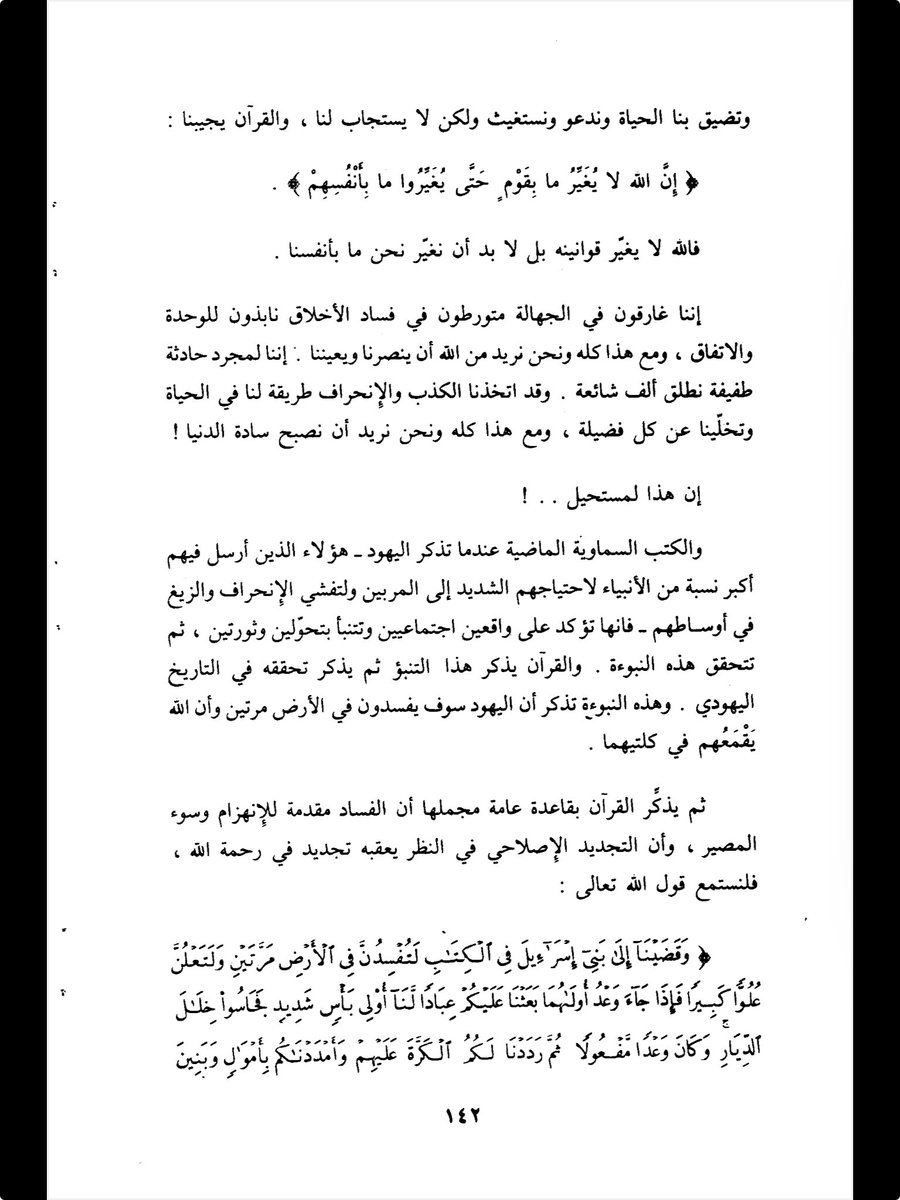 وتضيق بنا الحياة وندعو ونستغيث ولكن لا يستجاب لنا ، والقرآن يجيبنا :
﴿ إِنَّ الله لا يُغَيِّرُ ما بِقَوْمٍ حَتَّى يُغَيِّرُوا ما بِأَنْفُسِهِمْ ﴾ .
فالله لا يغيّر قوانينه بل لا بد أن نغيّر نحن ما بأنفسنا .
إننا غارقون في الجهالة متورطون في فساد الأخلاق نابذون للوحدة
والاتفاق ، ومع هذا كله ونحن نريد من الله أن ينصرنا ويعيننا . إننا لمجرد حادثة
طفيفة نطلق ألف شائعة . وقد اتخذنا الكذب والإنحراف طريقة لنا في الحياة
وتخلّينا عن كل فضيلة ، ومع هذا كله ونحن نريد أن نصبح سادة الدنيا !
إن هذا لمستحيل . . !
والكتب السماوية الماضية عندما تذكر اليهود ـ هؤلاء الذين أرسل فيهم
أكبر نسبة من الأنبياء لاحتياجهم الشديد إلى المربين ولتفشي الإنحراف والزيغ
في أوساطهم ـ فانها تؤكد على واقعين اجتماعيين وتتنبأ بتحوّلين وثورتين ، ثم
تتحقق هذه النبوءة . والقرآن يذكر هذا التنبؤ ثم يذكر تحققه في التاريخ
اليهودي . وهذه النبوءة تذكر أن اليهود سوف يفسدون في الأرض مرتين وأن الله
يَقْمَعُهم في كلتيهما .
ثم يذكِّر القرآن بقاعدة عامة مجملها أن الفساد مقدمة للإنهزام وسوء
المصير ، وأن التجديد الإصلاحي في النظر يعقبه تجديد في رحمة الله ،
فلنستمع قول الله تعالى :
﴿ وَقَضَيْنَآ إِلَىٰ بَنِىٓ إِسْرَٰٓءِيلَ فِى ٱلْكِتَٰبِ لَتُفْسِدُنَّ فِى ٱلْأَرْضِ مَرَّتَيْنِ وَلَتَعْلُنَّ
عُلُوًّا كَبِيرًا فَإِذَا جَآءَ وَعْدُ أُولَىٰهُمَا بَعَثْنَا عَلَيْكُمْ عِبَادًا لَّنَآ أُوْلِى بَأْسٍ شَدِيدٍ فَجَاسُوا۟ خِلَٰلَ
ٱلدِّيَارِ ۚ وَكَانَ وَعْدًا مَّفْعُولًا ثُمَّ رَدَدْنَا لَكُمُ ٱلْكَرَّةَ عَلَيْهِمْ وَأَمْدَدْنَٰكُم بِأَمْوَٰلٍ وَبَنِينَ
١٤٢